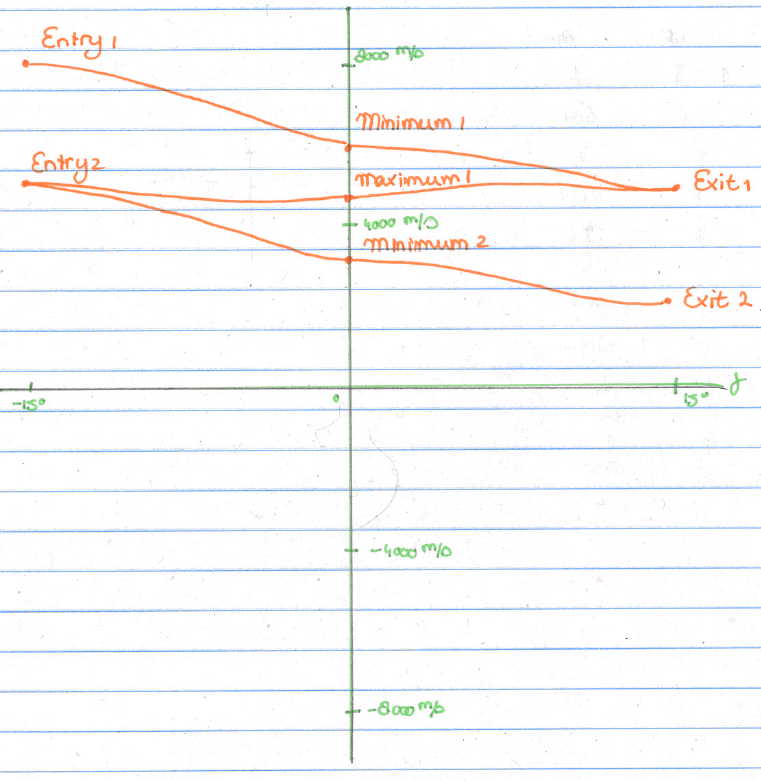 Entry 1
8000 m/s
Minimum 1
Entry 2
Maximum 1
Exit 1
4000 m/s
Minimum 2
Exit 2
-15°
0
15°
γ
-4000 m/s
-8000 m/s